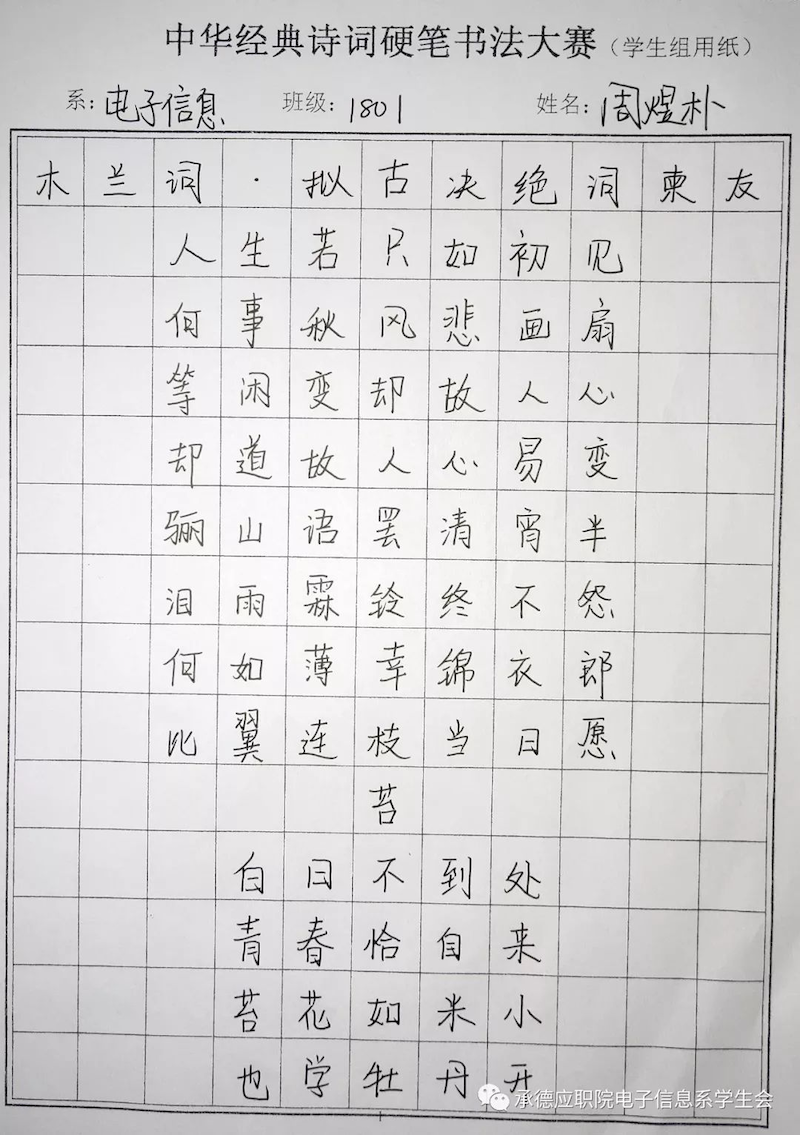 中华经典诗词硬笔书法大赛（学生组用纸）
系：电子信息 班级：1801 姓名：周煜朴
木兰词·拟古决绝词柬友
人生若只如初见
何事秋风悲画扇
等闲变却故人心
却道故人心易变
骊山语罢清宵半
泪雨霖铃终不怨
何如薄幸锦衣郎
比翼连枝当日愿
苔
白日不到处
青春恰自来
苔花如米小
也学牡丹开
承德应职院电子信息系学生会